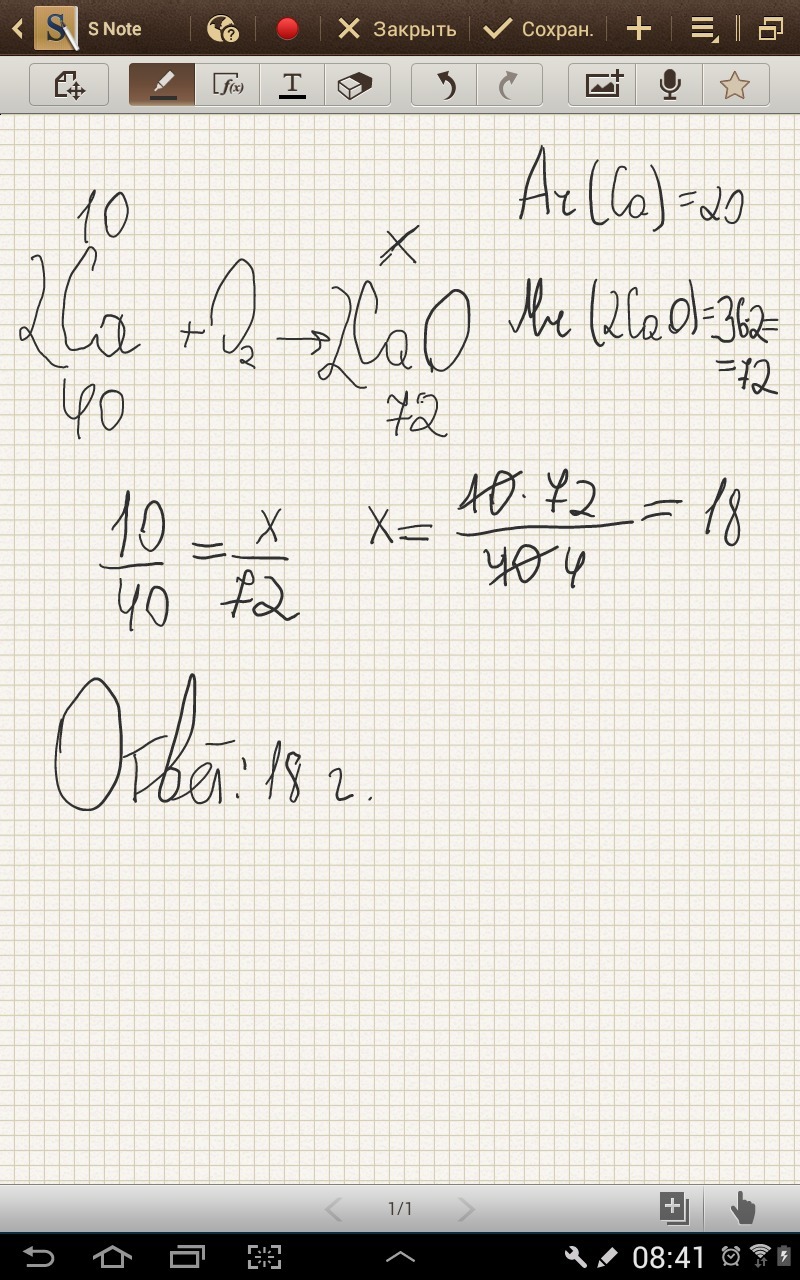 S Note
Закрыть
Сохран.
f(x)
T
10
x
Ar(Ca)=20
2Ca + O2 → 2CaO
Mr(2CaO)=36·2=
=72
40
72
10/40 = x/72
x = 10·72/40 4 = 18
Ответ: 18 г.
1/1
08:41